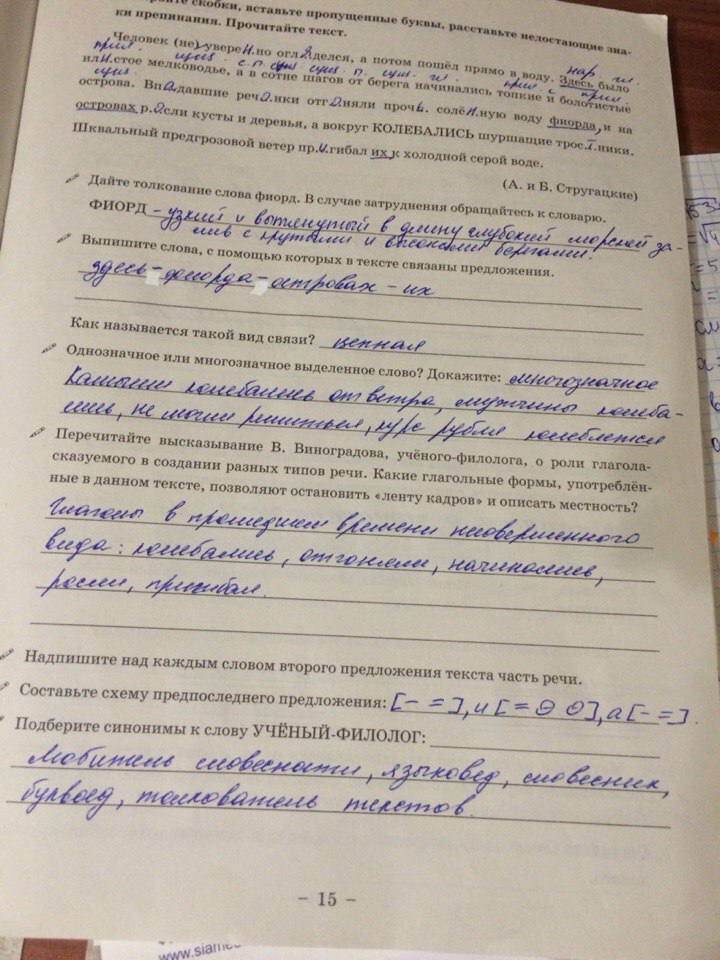 скобки, вставьте пропущенные буквы, расставьте недостающие зна-
ки препинания. Прочитайте текст.
Человек (не) увере.н.но огл.я.делся, а потом пошёл прямо в воду. Здесь было
прил. сущ. с. п. сущ. сущ. п. сущ. гл. прил. с. прил. нар. гл.
ил.и.стое мелководье, а в сотне шагов от берега начинались топкие и болотистые
сущ.
острова. Вп.а.давшие реч.о.нки отг.о.няли проч.ь. солё.н.ную воду фиорда, и на
островах р.о.сли кусты и деревья, а вокруг КОЛЕБАЛИСЬ шуршащие трос.т.ники.
Шквальный предгрозовой ветер пр.и.гибал их к холодной серой воде.
(А. и Б. Стругацкие)
Дайте толкование слова фиорд. В случае затруднения обращайтесь к словарю.
ФИОРД - узкий и вытянутый в длину глубокий морской за-
лив с крутыми и высокими берегами.
Выпишите слова, с помощью которых в тексте связаны предложения.
здесь - фиорда - островах - их
Как называется такой вид связи? цепная
Однозначное или многозначное выделенное слово? Докажите: многозначное
Камыши колебались от ветра, мужчины колеба-
лись, не могли решиться, курс рубля колеблется
Перечитайте высказывание В. Виноградова, учёного-филолога, о роли глагола-
сказуемого в создании разных типов речи. Какие глагольные формы, употреблён-
ные в данном тексте, позволяют остановить «ленту кадров» и описать местность?
Глаголы в прошедшем времени несовершенного
вида: колебались, отгоняли, начинались,
росли, пригибал.
Надпишите над каждым словом второго предложения текста часть речи.
Составьте схему предпоследнего предложения: [- =], и [= О О], а [- =].
Подберите синонимы к слову УЧЁНЫЙ-ФИЛОЛОГ:
Любитель словесности, языковед, словесник,
буквоед, толкователь текстов.
- 15 -